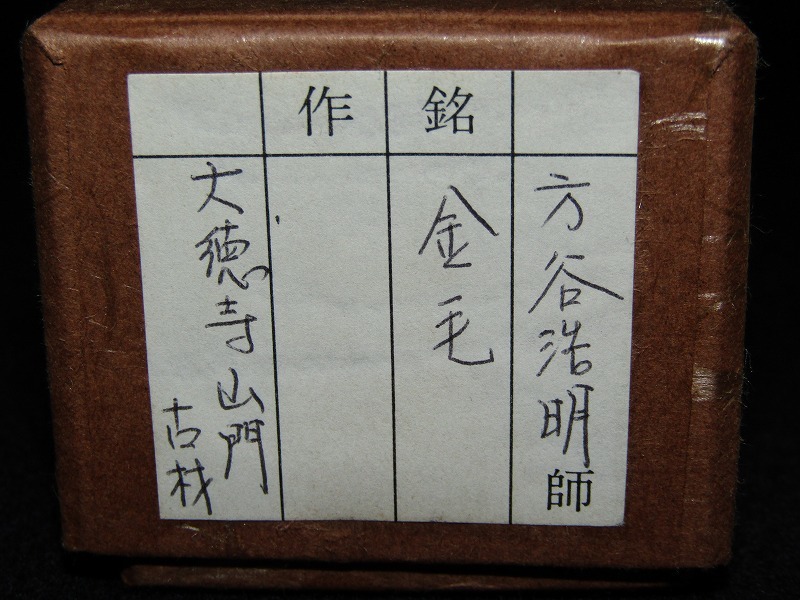 方谷浩明師
銘
金毛
作
大徳寺山門
古材